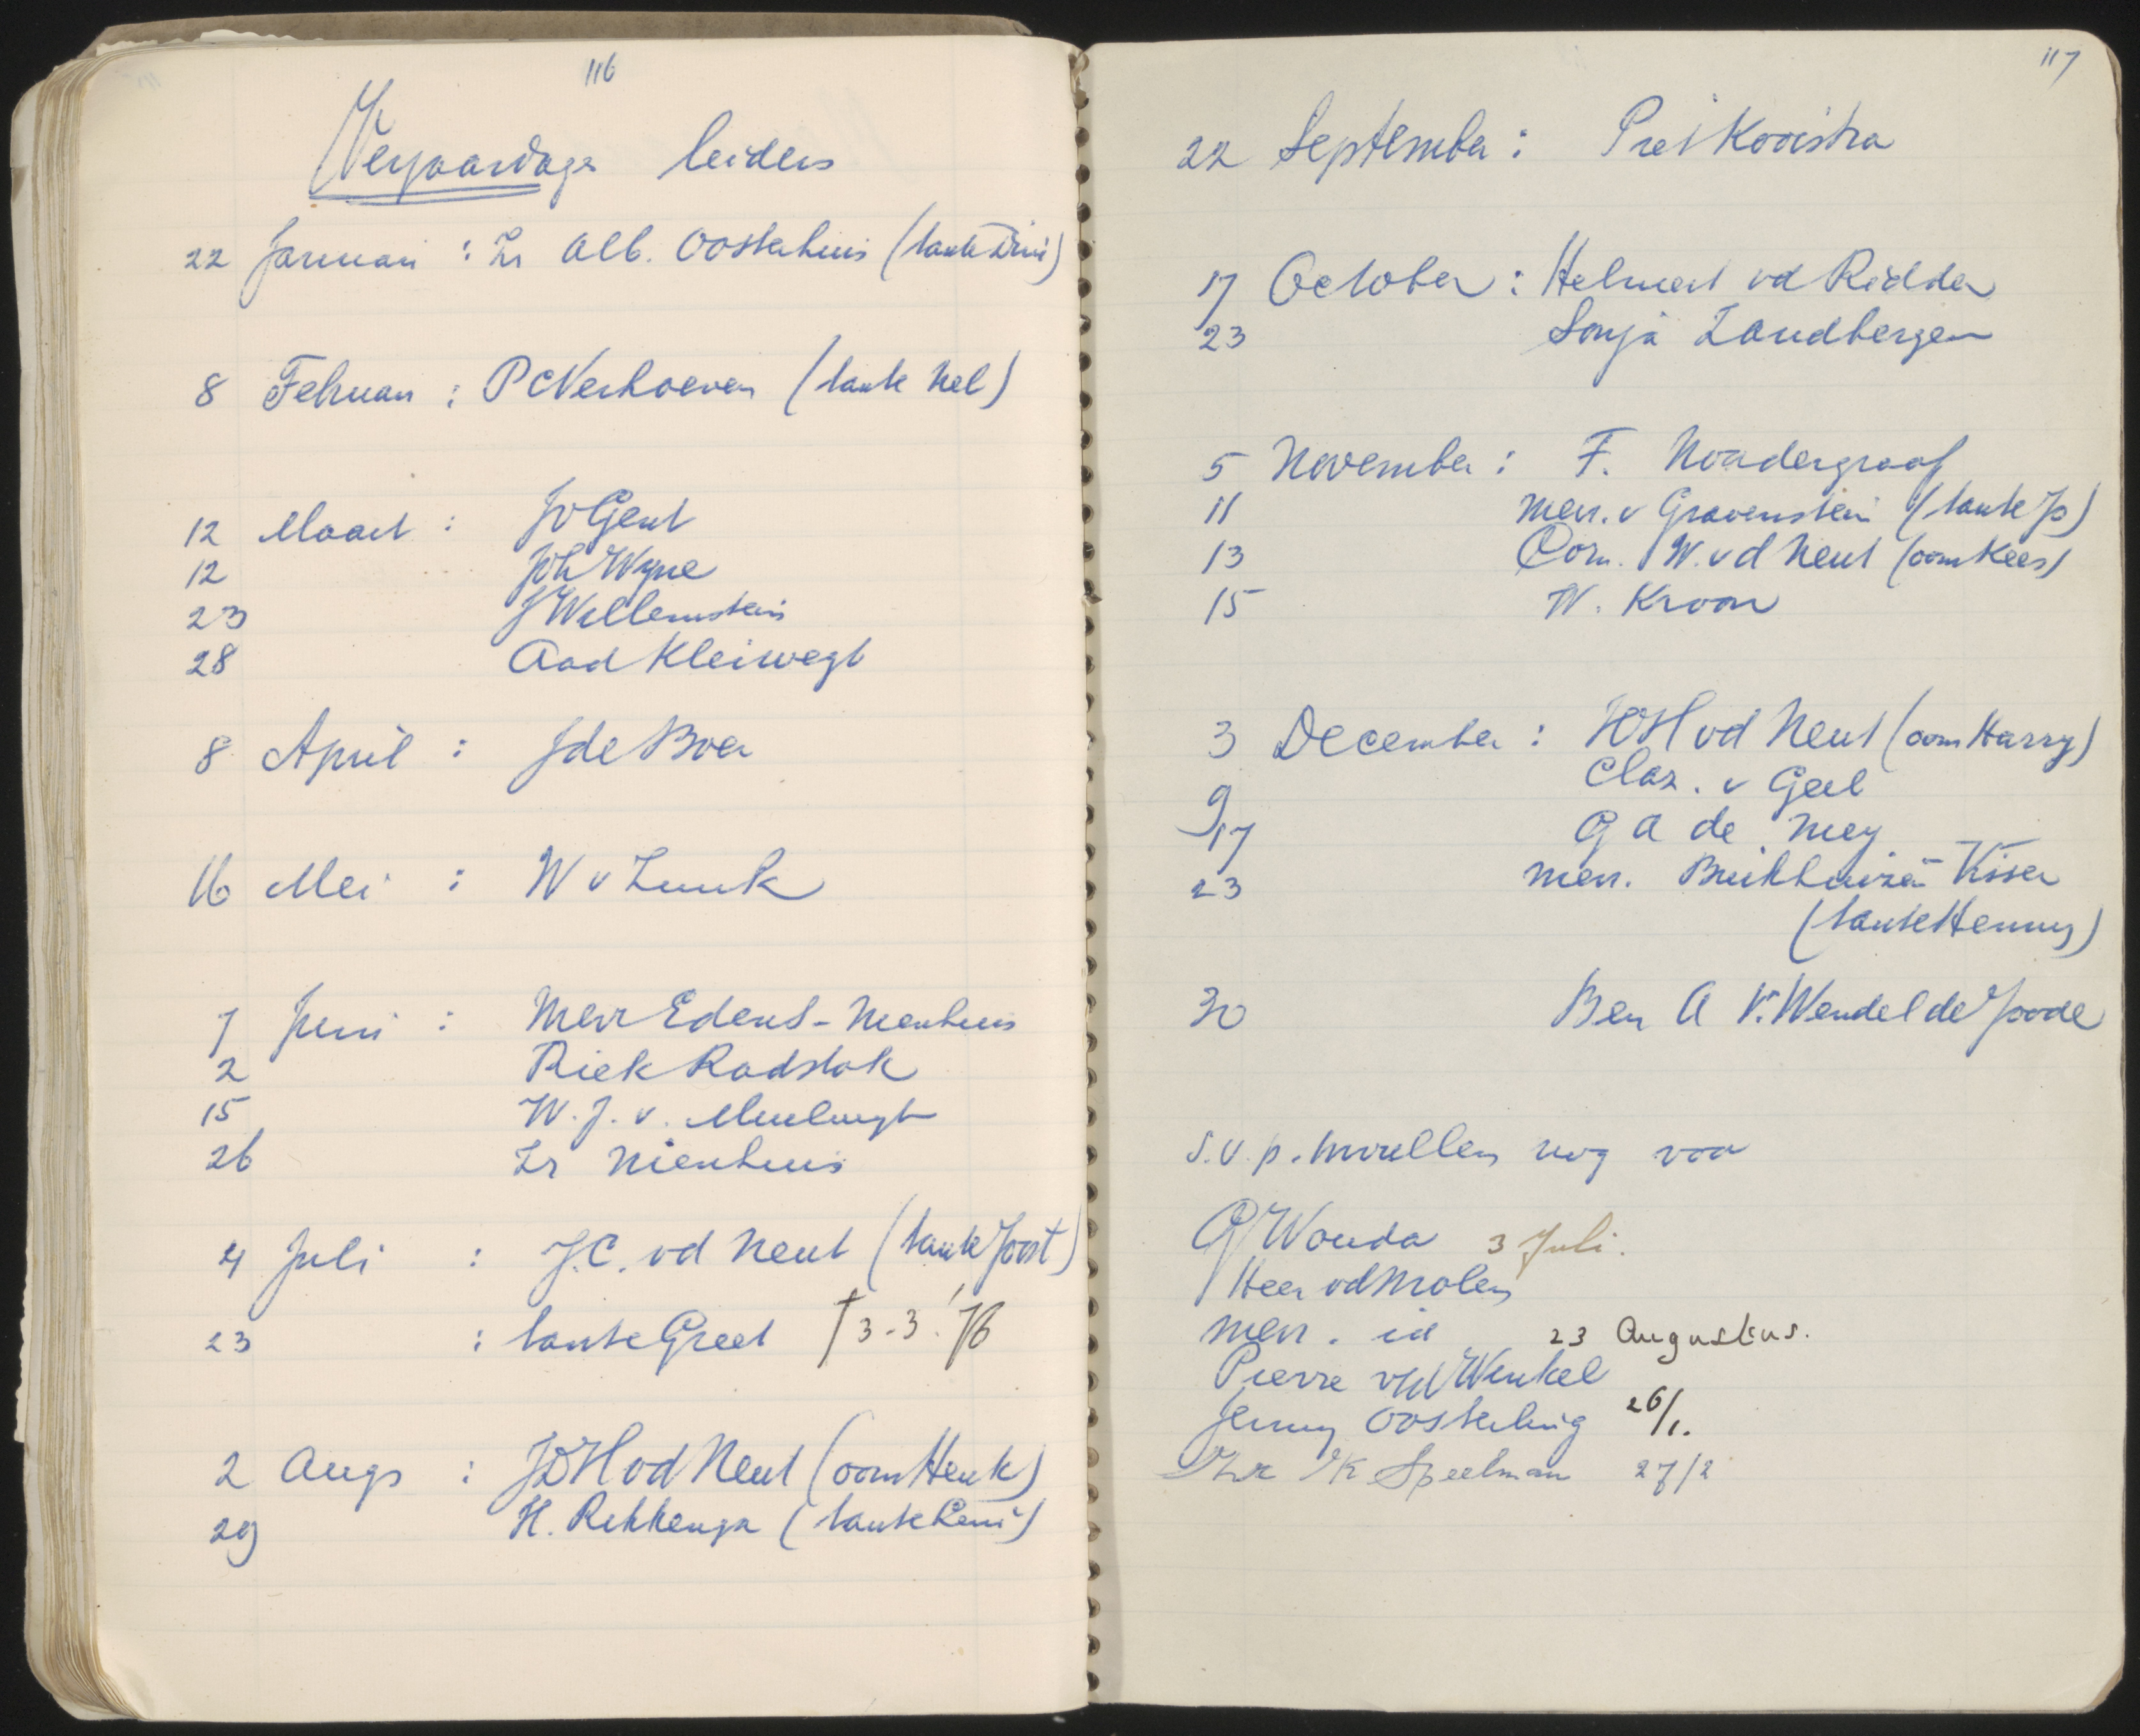 116
Verjaardags leiders
22 Januari : Zr Alb. Oosterhuis (tante Dini)
8 Februari : P C Verhoeven (tante Nel)
12 Maart : J v Gent
12 Joh Wyne
23 J Willemstein
28 Aad Kleiwegt
8 April : J de Boer
16 Mei : W v Zuuk
7 Juni : Mevr Edens - Nienhuis
2 Riek Radstok
15 W. J. v.
26 Zr Nienhuis
4 Juli : J. C. vd Neut (tante Joost)
23 : tante Greet † 3-3-'76
2 Augs : JDH vd Neut (oom Henk)
29 H. Rekkenga (tante Reni)
117
22 September : Piet Kooistra
17 October : Helmert vd Ridder
23 Sonja Zandbergen
5 November : F. Noordergraaf
11 mevr. v Gravenstein (tante Jo)
13 Corn. W. vd Neut (oom Kees)
15 W. Kroon
3 December : HDH vd Neut (oom Harry)
9 Claz. v Geel
17 G A de Mey
23 mevr. Buikhuizen - Visser
(tante Henny)
30 Ben A v. Wendel de Joode
s.v.p. invullen nog voor
G Wouda 3 Juli.
Heer vd Molen
mevr. id 23 Augustus.
Pierre vd Winkel
Jenny Oosterling 26/1.
Zr K Speelman 27/2